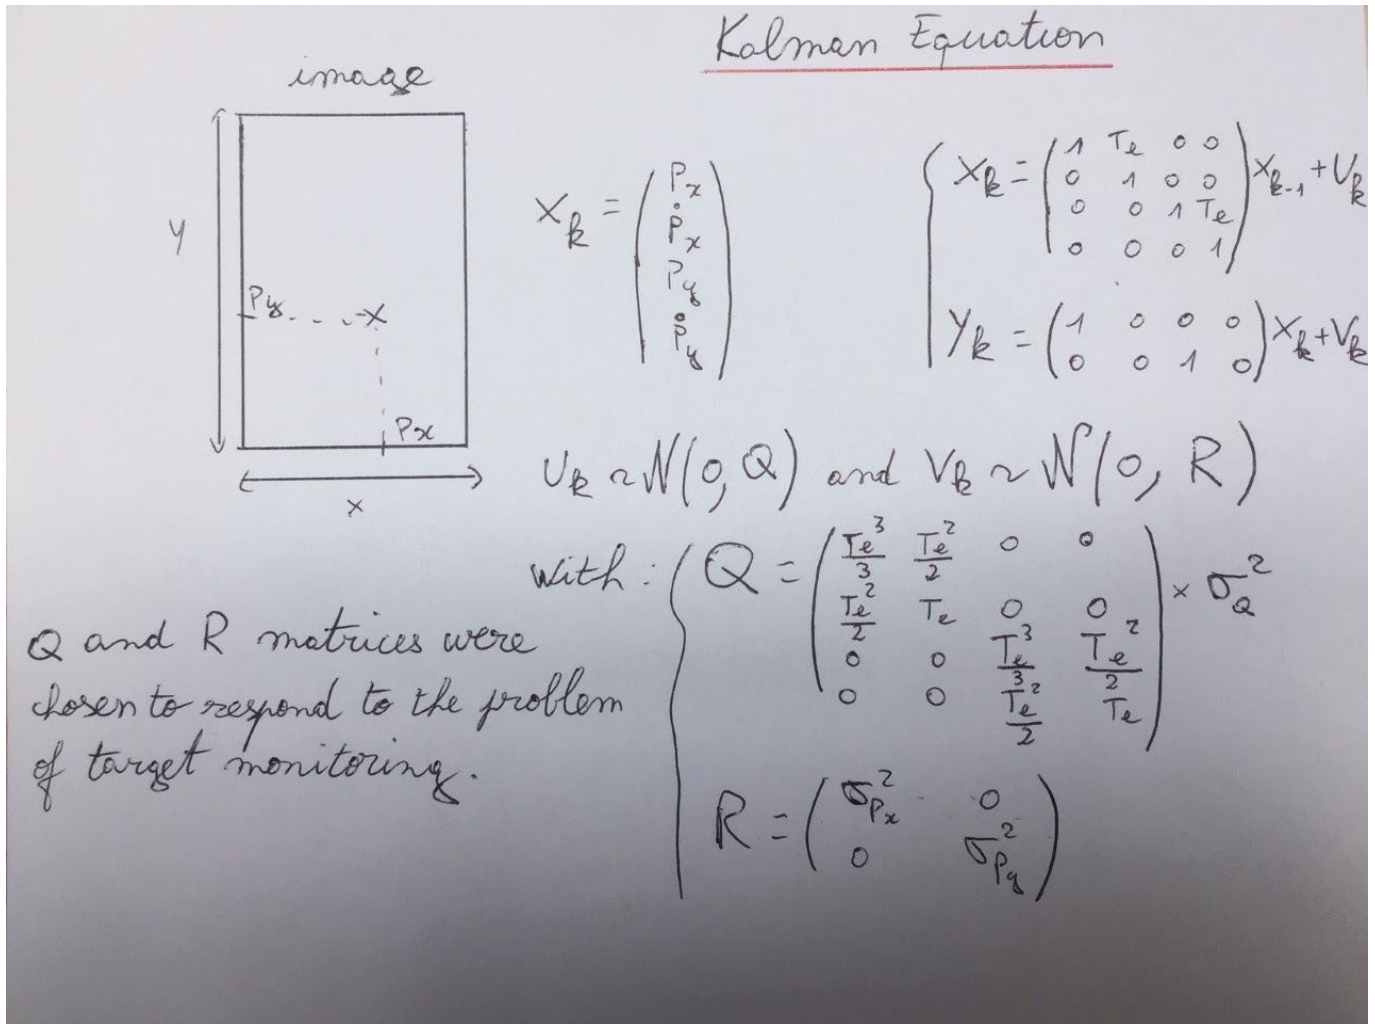 Kalman Equation
image
y
Py
Px
x
X_k = (Px
Ṗx
Py
Ṗy)
{ X_k = (1 Te 0 0
0 1 0 0
0 0 1 Te
0 0 0 1) X_{k-1} + U_k
Y_k = (1 0 0 0
0 0 1 0) X_k + V_k
U_k ~ N(0, Q) and V_k ~ N(0, R)
with : { Q = (Te³/3 Te²/2 0 0
Te²/2 Te 0 0
0 0 Te³/3 Te²/2
0 0 Te²/2 Te) × σ_Q²
R = (σ_Px² 0
0 σ_Py²)
Q and R matrices were
chosen to respond to the problem
of target monitoring.